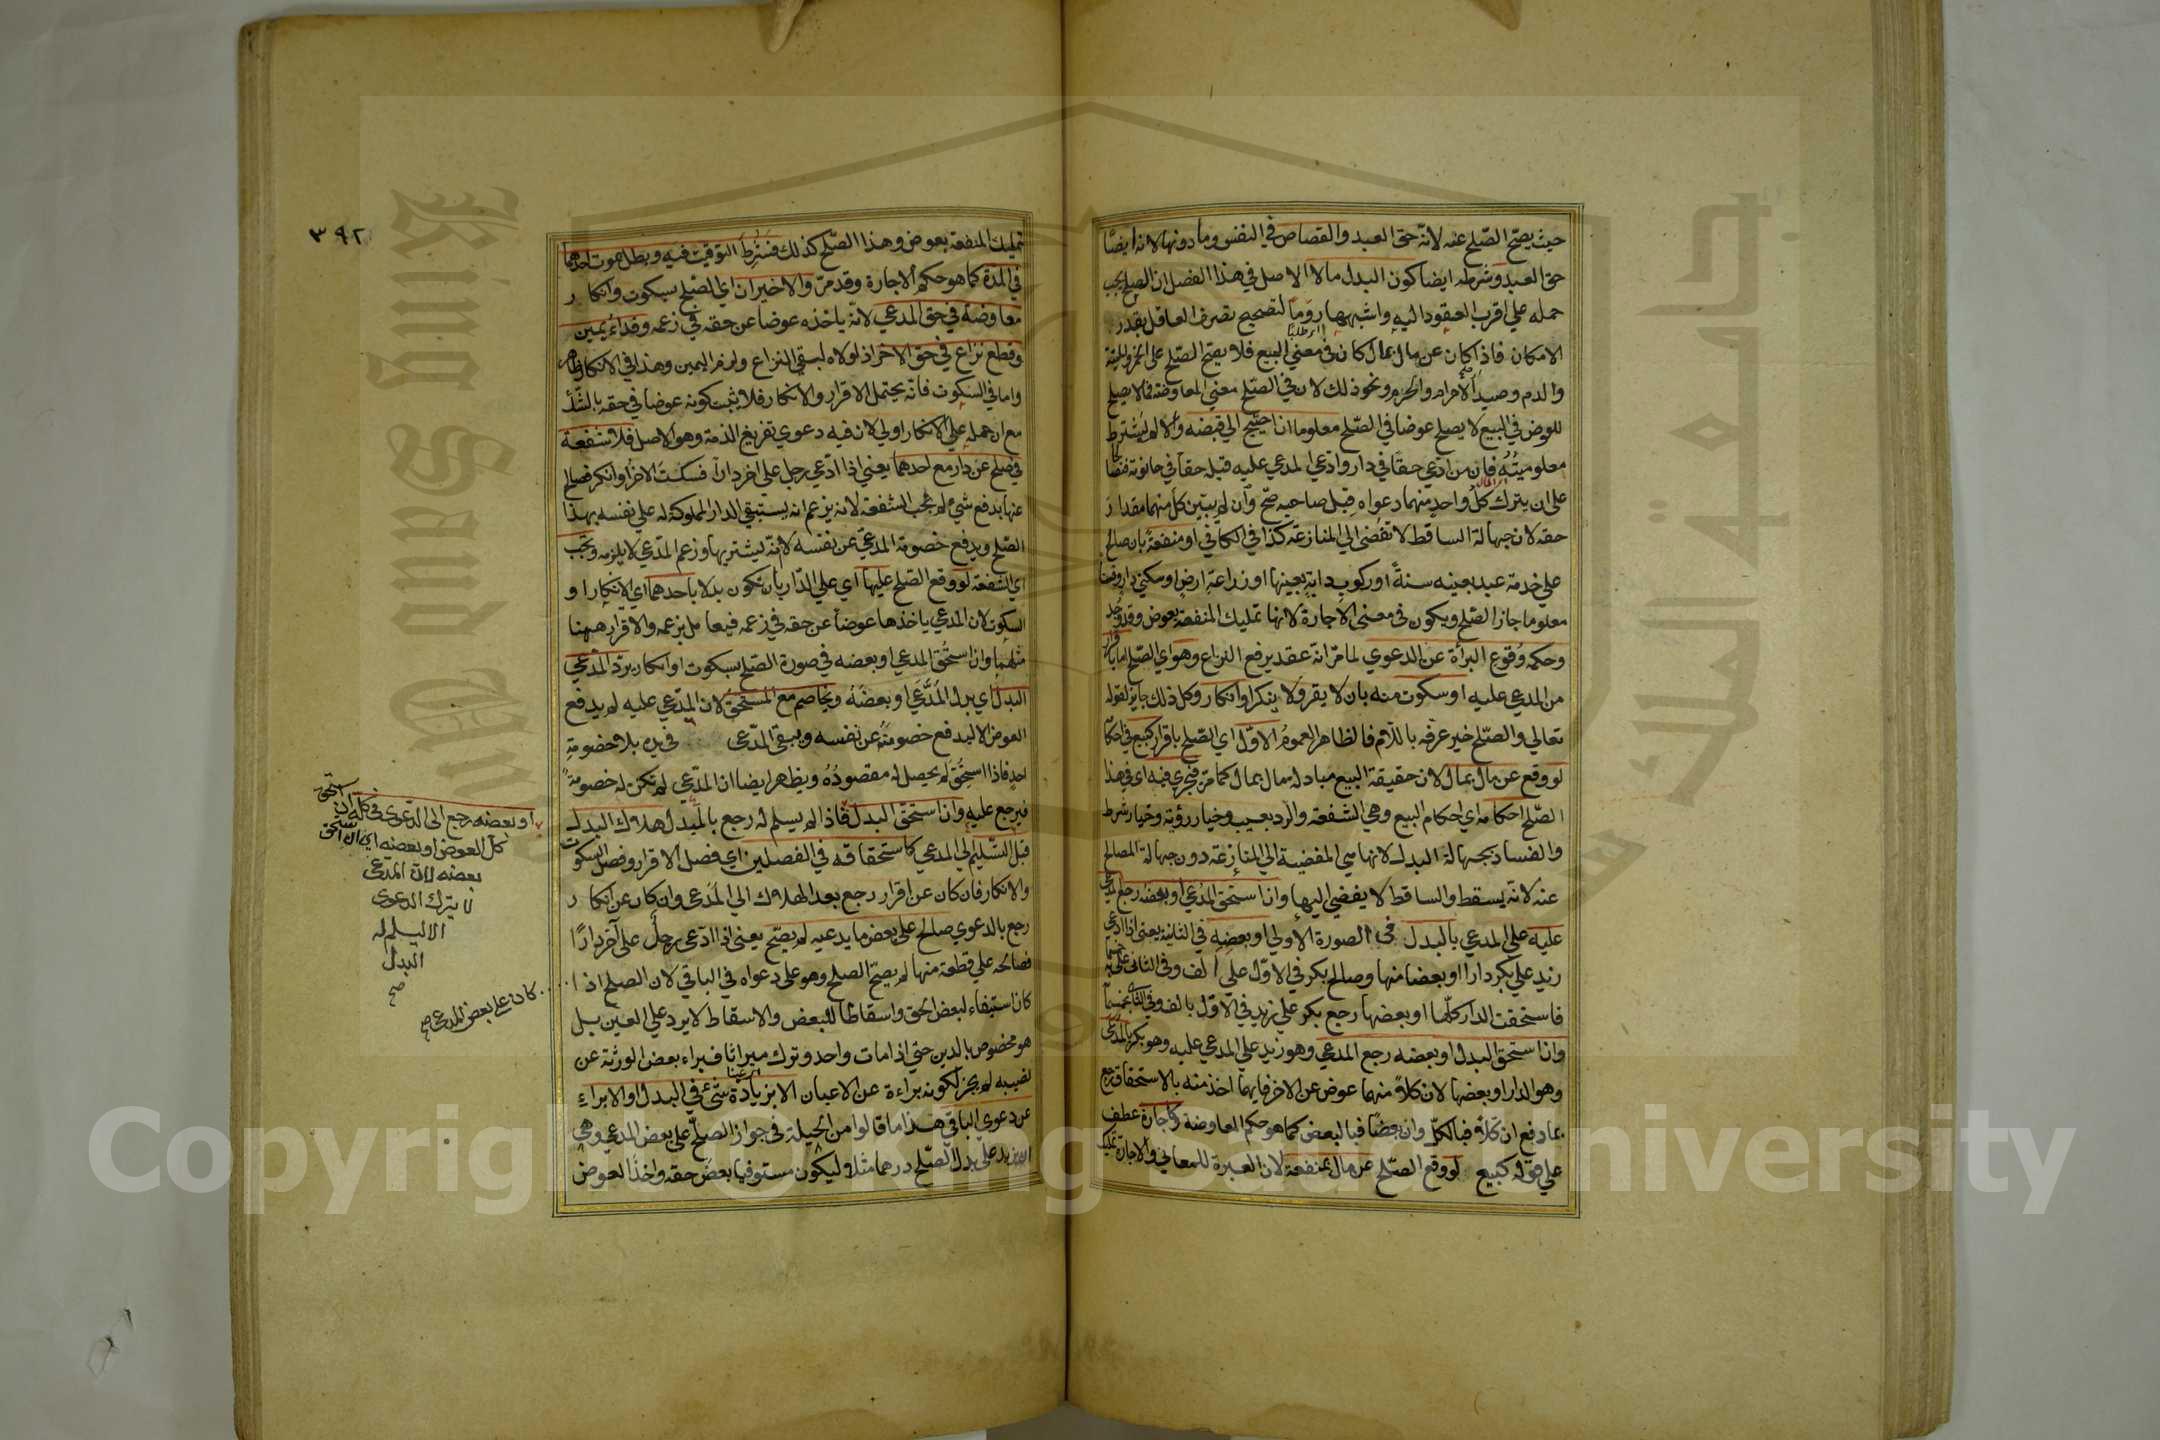 حيث يصح الصلح عنه لانه حق العبد والقصاص في النفس وما دونها لانه ايضا
حق العبد وشرطه ايضا كون البدل مالا الاصل في هذا الفصل ان الصلح يجب
حمله علي اقرب العقود اليه واشبهها روما لتصحيح تصرف العاقل بقدر
اي طلبا
الامكان فاذا كان عن مال بمال كان في معني البيع فلا يصح الصلح علي الخمر والميتة
والدم وصيد الاحرام والحرم ونحو ذلك لان في الصلح معني المعاوضة فما لا يصلح
للعوض في البيع لا يصلح عوضا في الصلح معلوما ان احتيج الي قبضه والا لم يشترط
معلوميته فان من ادعي حقا في دار وادعي المدعي عليه قبله حقا في حانوته فتصالحا
علي ان يترك كل واحد منهما دعواه قبل صاحبه صح وان لم يبين كل منهما مقدار
حقه لان جهالة الساقط لا تفضي الي المنازعة كذا في الكافي او منفعة بان صالح
علي خدمة عبد بعينه سنة او ركوب دابة بعينها او زراعة ارض او سكني دار وقتا
معلوما جاز الصلح ويكون في معني الاجارة لانها تمليك المنفعة بعوض وقد وجد
وحكمه وقوع البرأة عن الدعوي لما مر انه عقد يرفع النزاع وهو اي الصلح اما باقرار
من المدعي عليه او سكوت منه بان لا يقر ولا ينكر او انكار وكل ذلك جايز لقوله
تعالي والصلح خير عرفه باللام فالظاهر العموم الاول اي الصلح باقرار كبيع في احكامه
لو وقع عن مال بمال لان حقيقة البيع مبادلة مال بمال كما مر فتجري فيه اي في هذا
الصلح احكامه اي احكام البيع وهي الشفعة والرد بعيب وخيار رؤية وخيار شرط
والفساد بجهالة البدل لانها هي المفضية الي المنازعة دون جهالة المصالح
عنه لانه يسقط والساقط لا يفضي اليها وان استحق المدعي او بعضه رجع المدعي
عليه علي المدعي بالبدل في الصورة الاولي او بعضه في الثانية يعني اذا ادعي
زيد علي بكر دارا او بعضا منها وصالح بكر في الاول علي الف وفي الثاني علي خمسمائة
فاستحقت الدار كلها او بعضها رجع بكر علي زيد في الاول بالف وفي الثاني بخمسمائة
وان استحق البدل او بعضه رجع المدعي وهو زيد علي المدعي عليه وهو بكر بالمدعي
وهو الدار او بعضها لان كلا منهما عوض عن الاخر فايهما اخذ منه بالاستحقاق رجع
بما دفع ان كلا فبالكل وان بعضا فبالبعض كما هو حكم المعاوضة وكاجارة عطف
علي قوله كبيع لو وقع الصلح عن مال بمنفعة لان العبرة للمعاني والاجارة تمليك
٣٩٢
تمليك المنفعة بعوض وهذا الصلح كذلك فشرط التوقيت فيه وبطل بموت احدهما
في المدة كما هو حكم الاجارة وقد مر والاخيران اي الصلح بسكوت وانكار
معاوضة في حق المدعي لانه يأخذه عوضا عن حقه في زعمه وفداء يمين
وقطع نزاع في حق الاخر اذ لولاه لبقي النزاع ولزم اليمين وهذا في الانكار ظاهر
واما في السكوت فانه يحتمل الاقرار والانكار فلا يثبت كونه عوضا في حقه بالشك
مع ان حمله علي الانكار اولي لان فيه دعوي تفريغ الذمة وهو الاصل فلا شفعة
في صلح عن دار مع احدهما يعني اذا ادعي رجل علي اخر دارا فسكت الاخر او انكر فصالح
عنها بدفع شيء لم تجب الشفعة لانه يزعم انه يستبقي الدار المملوكة له علي نفسه بهذا
الصلح ويدفع خصومة المدعي عن نفسه لا انه يشتريها وزعم المدعي لا يلزمه وتجب
اي الشفعة لو وقع الصلح عليها اي علي الدار بان تكون بدلا باحدهما اي الانكار او
السكوت لان المدعي ياخذها عوضا عن حقه في زعمه فيعامل بزعمه والاقرار ههنا
مثلهما وان استحق المدعي او بعضه في صورة الصلح بسكوت او انكار يرد المدعي
البدل اي بدل المدعي او بعضه ويخاصم مع المستحق لان المدعي عليه لم يدفع
العوض الا ليدفع خصومته عن نفسه ويبقي المدعي في يده بلا خصومة
احد فاذا استحق لم يحصل له مقصوده ويظهر ايضا ان المدعي لم تكن له خصومة
فيرجع عليه وان استحق البدل فاذا لم يسلم له رجع بالمبدل هلاك البدل
قبل التسليم الي المدعي كاستحقاقه في الفصلين اي فصل الاقرار وفصل السكوت
والانكار فان كان عن اقرار رجع بعد الهلاك الي المدعي وان كان عن انكار
رجع بالدعوي صالح علي بعض ما يدعيه لم يصح يعني اذا ادعي رجل علي آخر دارا
فصالحه علي قطعة منها لم يصح الصلح وهو علي دعواه في الباقي لان الصلح اذا
كان استيفاء لبعض الحق واسقاطا للبعض والاسقاط لا يرد علي العين بل
هو مخصوص بالدين حتي اذا مات واحد وترك ميراثا فبراء بعض الورثة عن
نصيبه لم يجز لكونه براءة عن الاعيان الا بزيادة شئ في البدل او الابراء
عن دعوي الباقي هذا ما قالوا من الحيلة في جواز الصلح علي بعض المدعي وهي
ان يزيد علي بدل الصلح درهما مثلا ليكون مستوفيا بعض حقه واخذا العوض
او بعضه رجع الى الدعوى في كله ان استحق
كل العوض او بعضه اي ان استحق
بعضه لان المدعي
لا يترك الدعوى
الا ليسلم له
البدل
صح
كان على بعض المدعى صح
Copyright © King Saud University
King Saud University
جامعة الملك سعود